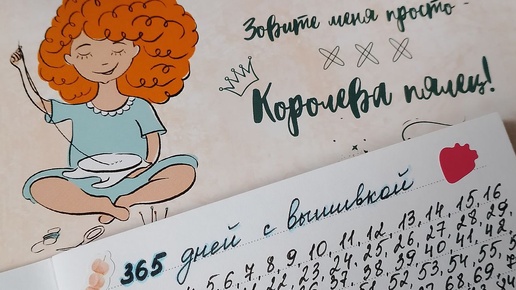 Зовите меня просто -
Королева пялец!
365 дней с вышивкой
5, 6, 7, 8, 9, 10, 11, 12, 13, 14, 15, 16
22, 23, 24, 25, 26, 27, 28, 29,
37, 38, 39, 40, 41, 42,
52, 53, 54, 55,